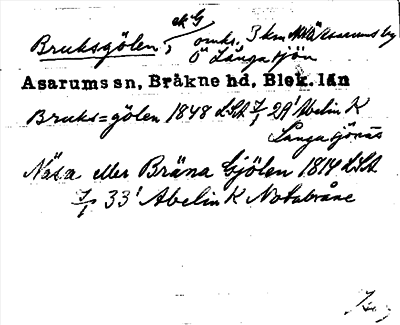 ek G
Bruksgölen, omkr. 3 km NNV Asarums by
Ö Långasjön
Asarums sn, Bräkne hd, Blek. län
Bruks=gölen 1848 LSA 7/1 29' Abelin K
Långasjönäs
Näsa eller Bräna Gjölen 1814 LSA
7/1 33' Abelin K Notabråne